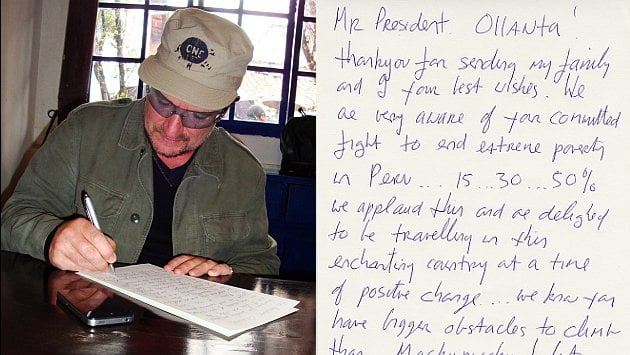 CNE
Mr President. Ollanta!
thankyou for sending my family
and I your best wishes. We
are very aware of your committed
fight to end extreme poverty
in Peru.... 15...30...50%
we applaud this and are delighted
to be travelling in this
enchanting country at a time
of positive change.... we know you
have bigger obstacles to climb
than